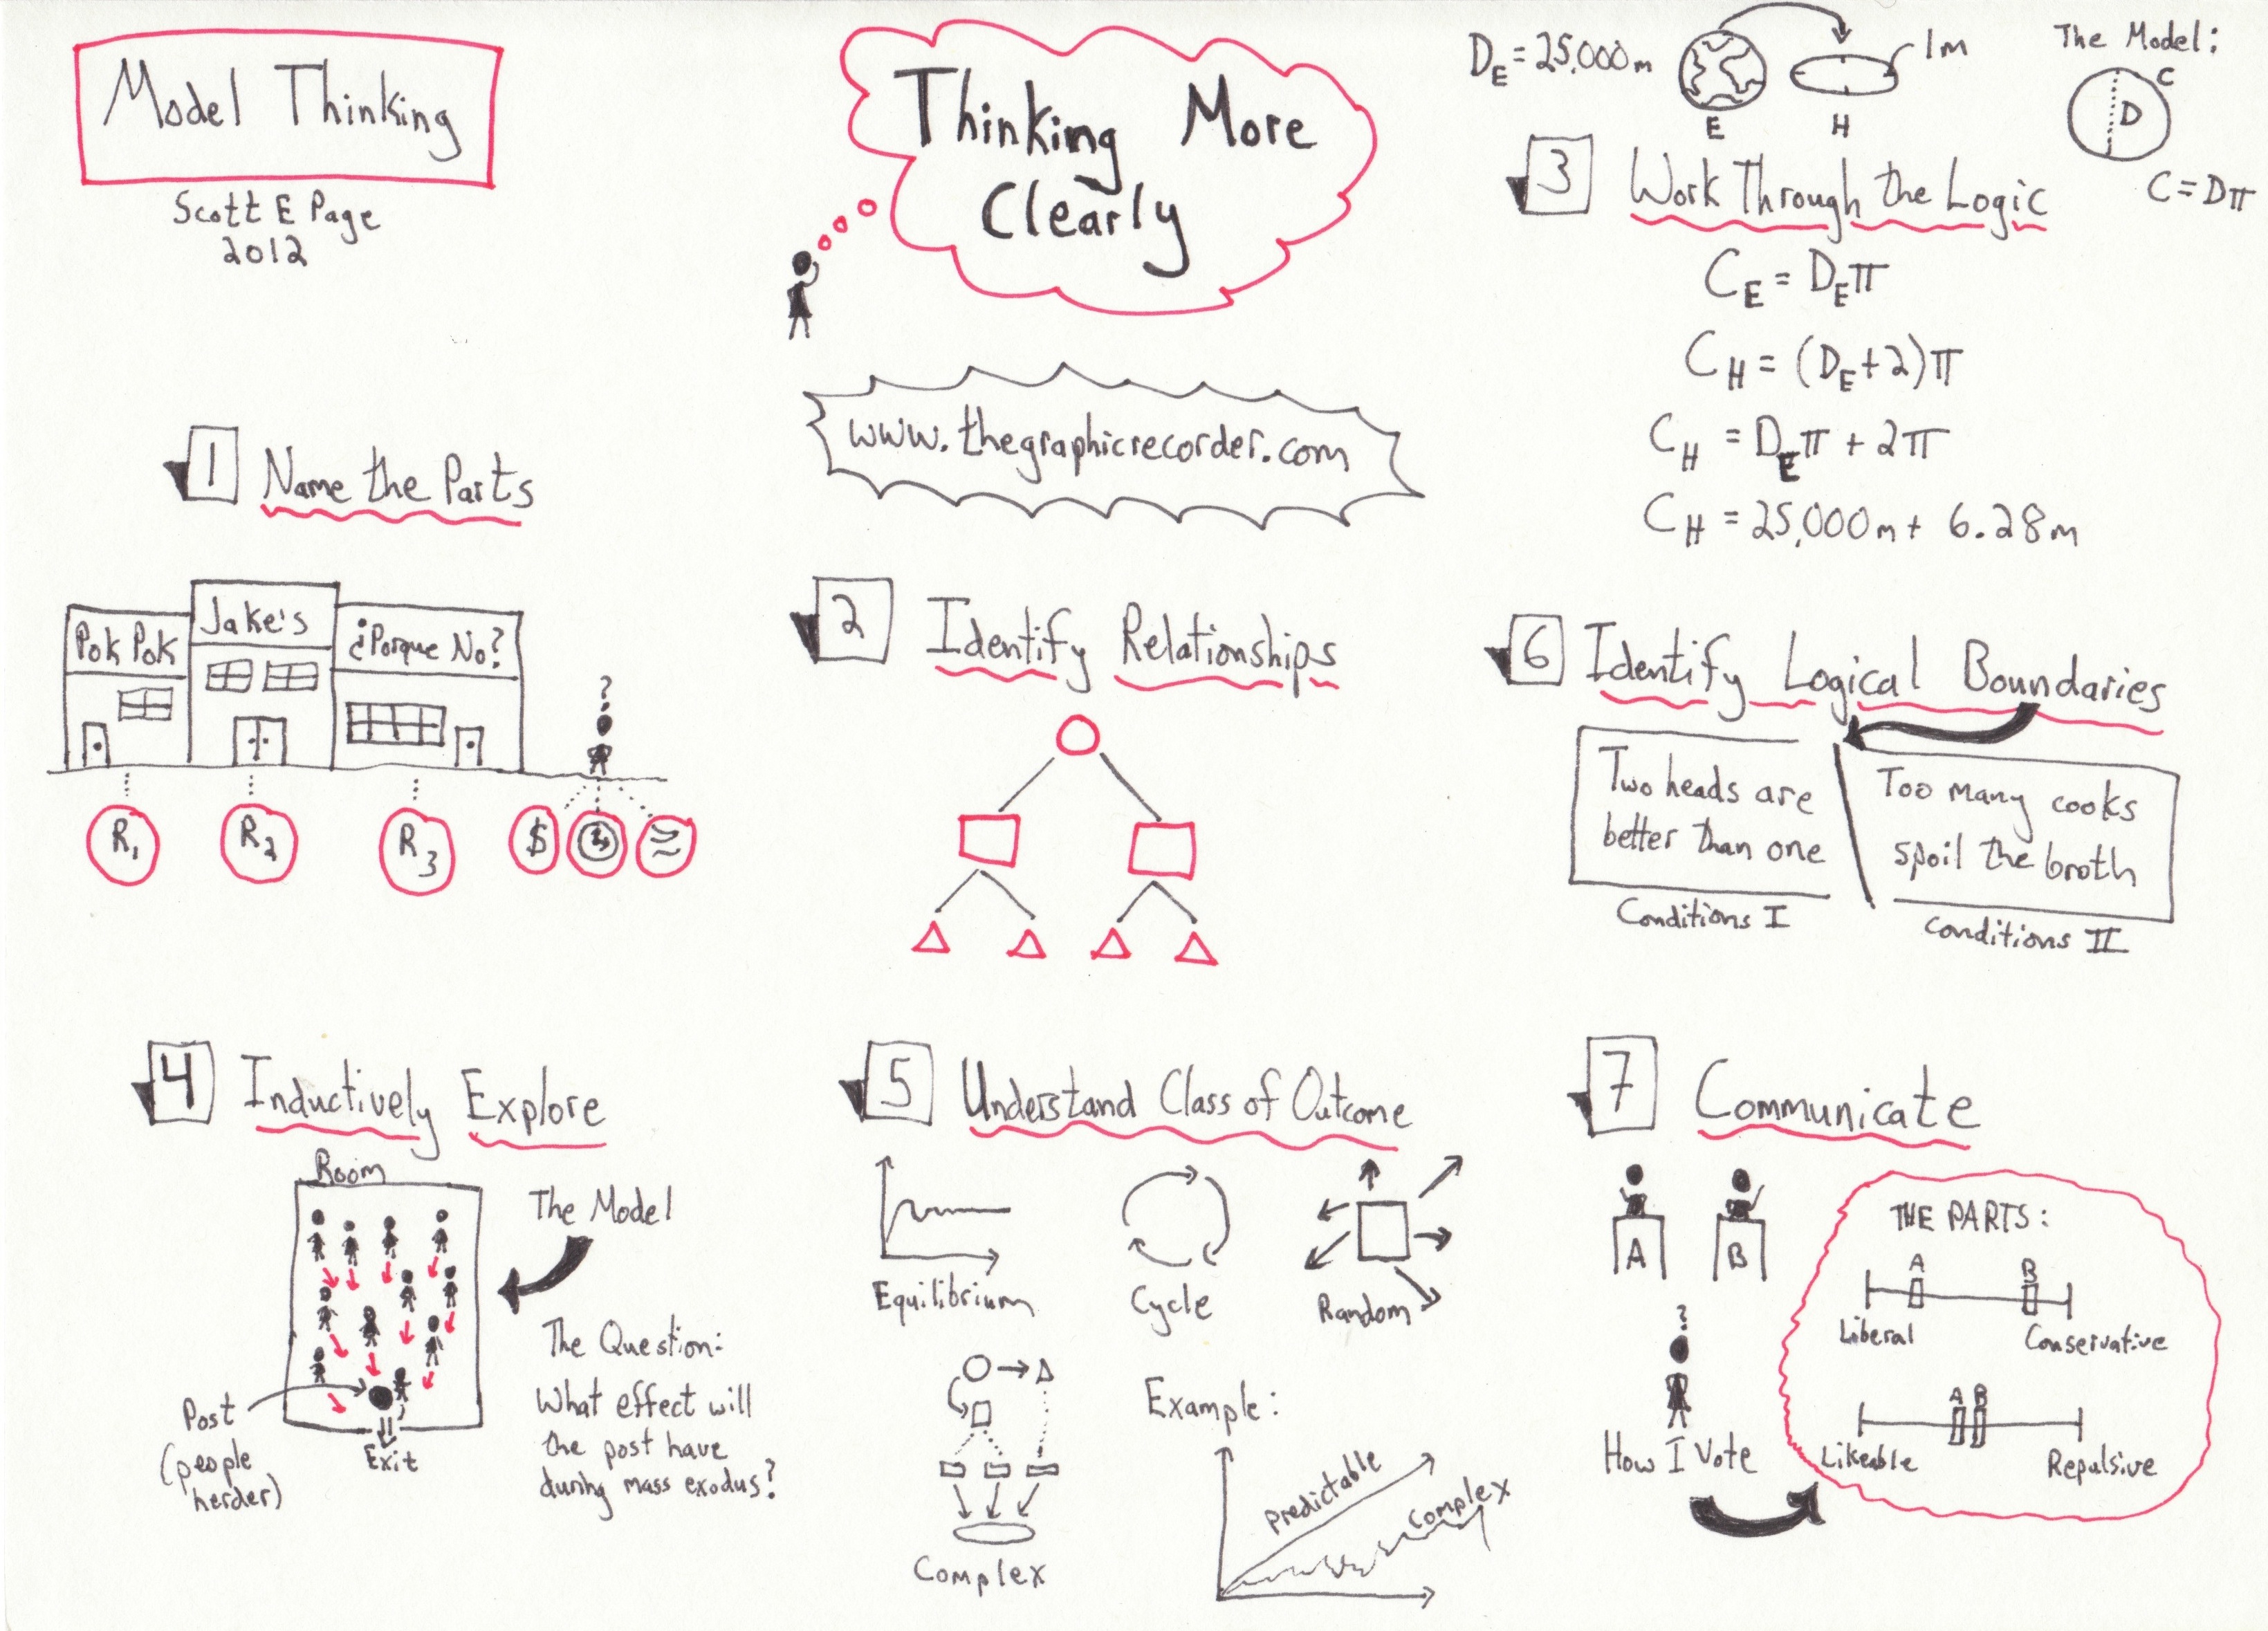 Model Thinking
Scott E Page
2012
Thinking More
Clearly
www.thegraphicrecorder.com
1 Name the Parts
Pok Pok
Jake's
¿Porque No?
?
R1
R2
R3
$
2 Identify Relationships
DE = 25,000m
E
H
1m
The Model:
C
D
C = Dπ
3 Work Through the Logic
CE = DEπ
CH = (DE+2)π
CH = DEπ + 2π
CH = 25,000m + 6.28m
4 Inductively Explore
Room
The Model
The Question:
What effect will
the post have
during mass exodus?
Post
(people
herder)
Exit
5 Understand Class of Outcome
Equilibrium
Cycle
Random
Complex
Example:
predictable
Complex
6 Identify Logical Boundaries
Two heads are
better than one
Conditions I
Too many cooks
spoil the broth
Conditions II
7 Communicate
A
B
?
How I Vote
THE PARTS:
A
B
Liberal
Conservative
A B
Likeable
Repulsive